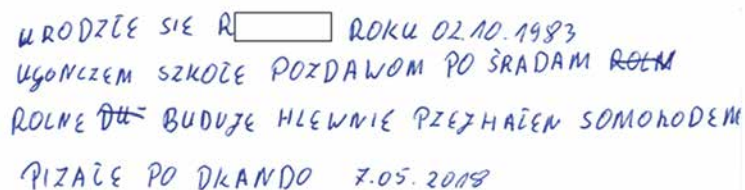 URODZIE SIE R ROKU 02.10.1983
UGONCZEM SZKOŁE POZDAWOM PO ŚRADAM ROLM
ROLNE DU- BUDUJE HLEWNIE PZEJHAŁEN SOMOHODEM
PIZAŁE PO DKANDO 7.05.2018